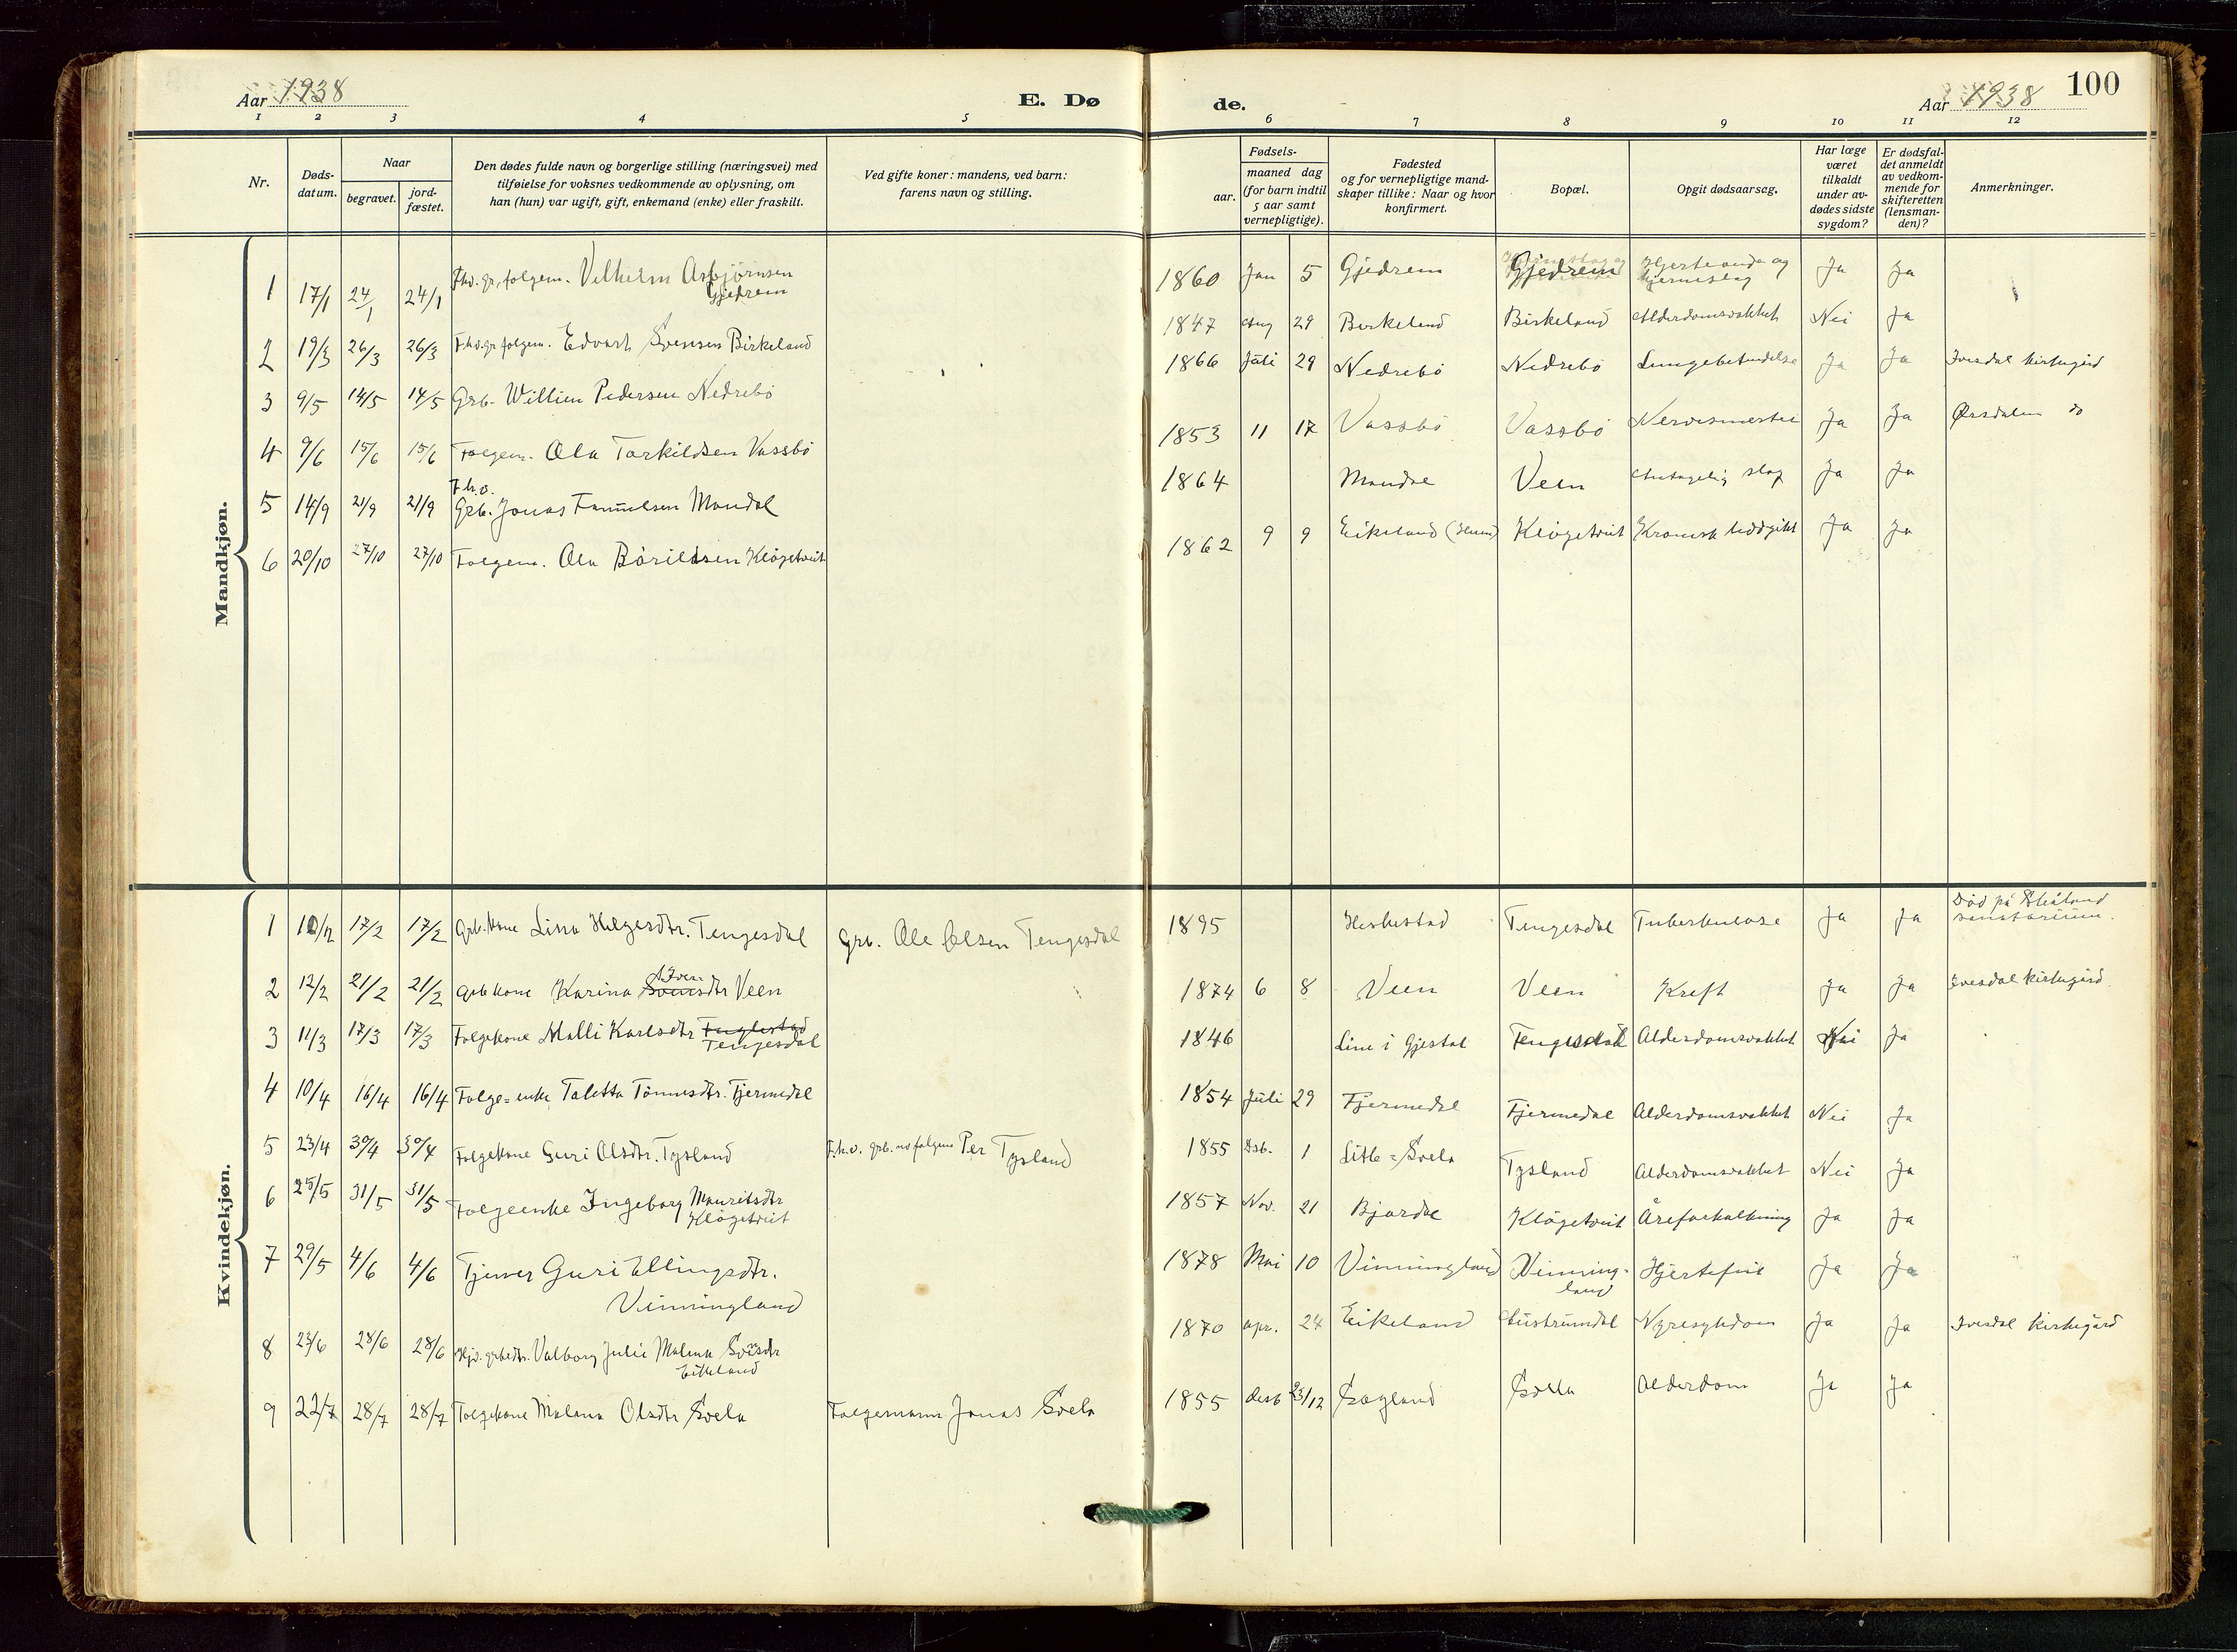 Aar 1938
E. Dø
de.
Aar 1938
100
1 2 3 4 5 6 7 8 9 10 11 12
Nr.
Døds-
datum.
Naar
begravet.
jord-
fæstet.
Den dødes fulde navn og borgerlige stilling (næringsvei) med
tilføielse for voksnes vedkommende av oplysning, om
han (hun) var ugift, gift, enkemand (enke) eller fraskilt.
Ved gifte koner: mandens, ved barn:
farens navn og stilling.
Fødsels-
aar.
maaned dag
(for barn indtil
5 aar samt
vernepligtige).
Fødested
og for vernepligtige mand-
skaper tillike: Naar og hvor
konfirmert.
Bopæl.
Opgit dødsaarsag.
Har læge
været
tilkaldt
under av-
dødes sidste
sygdom?
Er dødsfal-
det anmeldt
av vedkom-
mende for
skifteretten
(lensman-
den)?
Anmerkninger.
Mandkjøn.
1 17/1 24/1 24/1 Fhv. gr, folgem. Vilhelm Asbjørnsen Gjedrem 1860 Jan 5 Gjedrem Gjedrem Hjerteonde og hjerneslag Ja Ja
2 19/3 26/3 26/3 Fhv. gr folgem. Edvart Svensen Birkeland 1847 Aug 29 Birkeland Birkeland Alderdomsvakhet Nei Ja
3 9/5 14/5 14/5 Grb. Willien Pedersen Nedrebö 1866 Juli 29 Nedrebö Nedrebö Lungebetendelse Ja Ja Ivesdal kirkegård
4 9/6 15/6 15/6 Folgem. Ola Torkildsen Vassbö 1853 11 17 Vassbö Vassbö Nervesmerter Ja Ja Ørsdalen do
5 14/9 21/9 21/9 F.h.v. Grb. Jonas Samuelsen Mondal 1864 Mondal Veen Antagelig slag Ja Ja
6 20/10 27/10 27/10 Folgem. Ola Bårildsen Klögetveit 1862 9 9 Eikeland (Hunn) Klögetveit Kronisk leddgikt Ja Ja
Kvindekjøn.
1 10/2 17/2 17/2 Grb.kone Lina Helgesdtr. Tengesdal Grb. Ole Olsen Tengesdal 1895 Heskestad Tengesdal Tuberkulose Ja Ja Död på sanatorium.
2 12/2 21/2 21/2 Grb kone Karina Svensdtr Iver Veen 1874 6 8 Veen Veen Kreft Ja Ja Ivesdal kirkegård.
3 11/3 17/3 17/3 Folgekone Malli Karlsdtr Fuglestad Tengesdal 1846 Line i Gjestal Tengesdal Alderdomsvakhet Nei Ja
4 10/4 16/4 16/4 Folge=enke Taletta Tönnesdtr. Fjermedal 1854 Juli 29 Fjermedal Fjermedal Alderdomsvakhet Nei Ja
5 23/4 30/4 30/4 Folgekone Guri Olsdtr. Tysland F.h.v. grb. no folgem Per Tysland 1855 Dsb. 1 Litle=Svela Tysland Alderdomsvakhet Nei Ja
6 25/5 31/5 31/5 Folgeenke Ingeborg Mauritsdtr Klögetveit 1857 Nov. 21 Bjordal Klögetveit Åreforkalkning Ja Ja
7 29/5 4/6 4/6 Tjener Guri Ellingsdtr. Vinningland 1878 Mai 10 Vinningland Vinning-land Hjertefeil Ja Ja
8 23/6 28/6 28/6 Hjv. grbedtr. Valborg Julie Malena Eikeland 1870 apr. 24 Eikeland Gustrumdal Nyresykdom Ja Ja Ivesdal kirkegård
9 22/7 28/7 28/7 Folgekone Malena Olsdtr Svela Folgemann Jonas Svela 1855 desb 23/12 Sagland Svela Alderdom Ja Ja